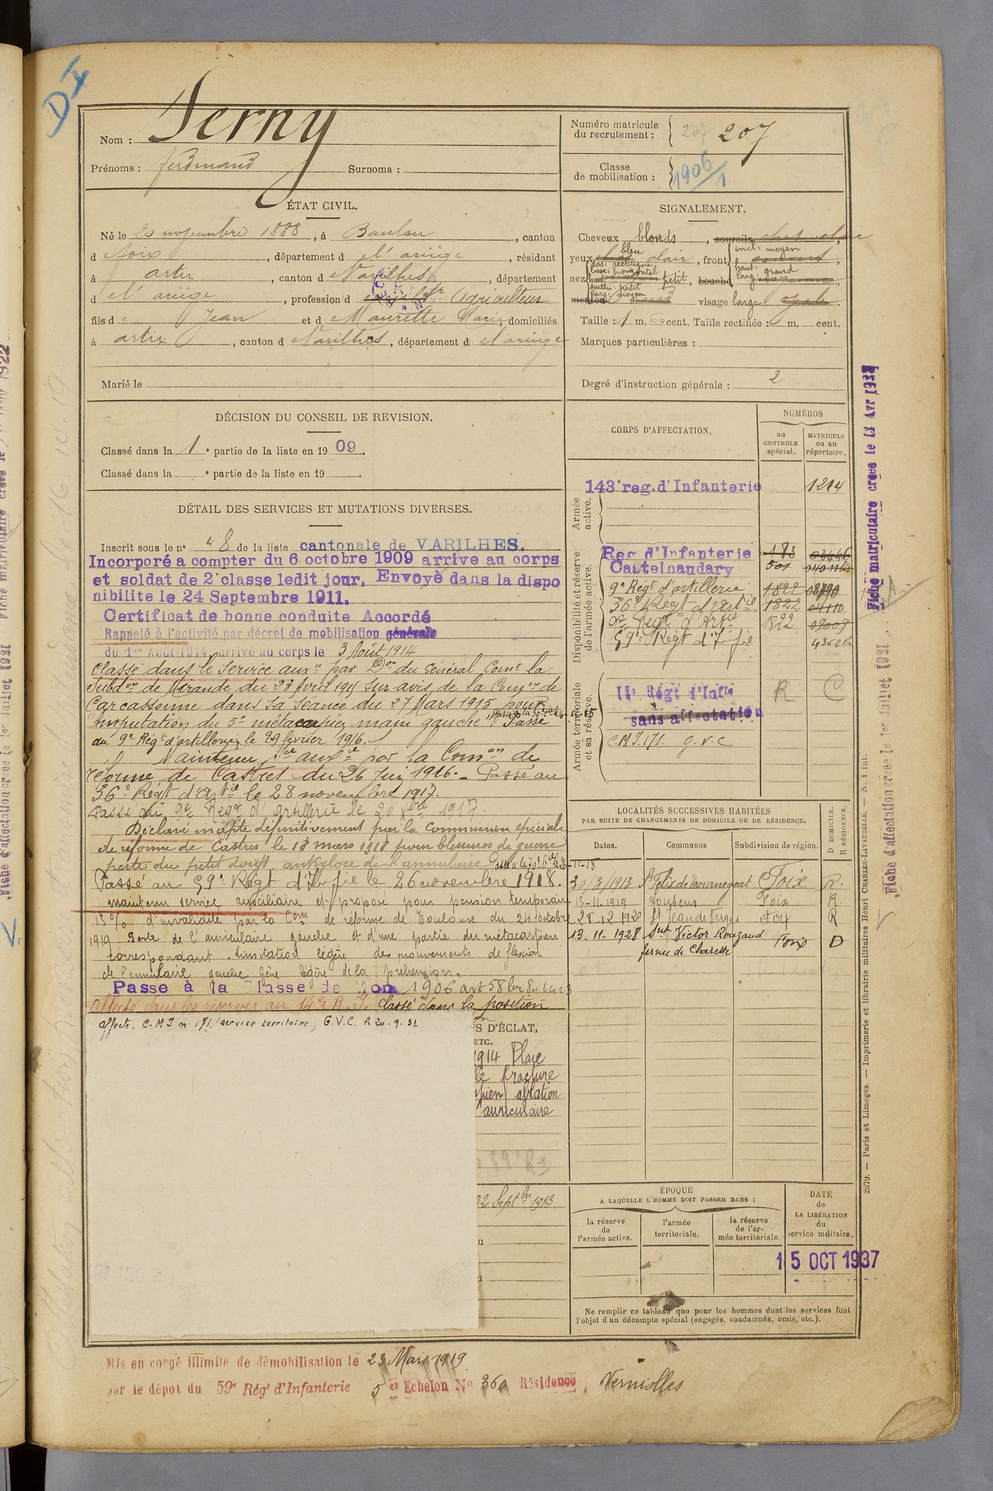 D I
Nom : Serny
Prénoms : ferdinand Surnoms :
Numéro matricule du recrutement : 207
Classe de mobilisation : 1906/1
ÉTAT CIVIL.
Né le 20 novembre 1888, à Baulou, canton
d foix, département d l'ariège, résidant
à artix, canton d Varilhes, département
d l'ariège, profession d Agriculteur
fils d Jean et d Maurette Marie, domiciliés
à artix, canton d Varilhes, département d l'ariège
Marié le
SIGNALEMENT.
Cheveux blonds, sourcils
yeux bleu clair, front incl: moyen
haut: larg: grand
nez dos: rectiligne base: horizontal petit, bouche
visage large
Taille : 1 m. 60 cent. Taille rectifiée : m. cent.
Marques particulières :
Degré d'instruction générale : 2
DÉCISION DU CONSEIL DE REVISION.
Classé dans la 1e partie de la liste en 1909.
Classé dans la e partie de la liste en 19 .
DÉTAIL DES SERVICES ET MUTATIONS DIVERSES.
Inscrit sous le n° 48 de la liste cantonale de VARILHES.
Incorporé a compter du 6 octobre 1909 arrive au corps
et soldat de 2e classe ledit jour, Envoyé dans la dispo
nibilite le 24 Septembre 1911.
Certificat de bonne conduite Accordé
Rappelé à l'activité par décret de mobilisation générale
du 1er Août 1914, arrivé au corps le 3 Août 1914
Classé dans le Service auxre par Don du Général Comt la
Subdon de Mirande du 23 avril 1915 sur avis de la Comon de
Carcassonne dans sa séance du 27 Mars 1915 pour
amputation du 5e métacarpien main gauche Passé
au 9e Régt d'artillerie le 29 février 1916.
Maintenu Sce auxre par la Comon de
réforme de Castres du 26 Juin 1916. - Passé au
56e Régt d'Artie le 28 novembre 1917.
Passé au 9e Régt d'artillerie le 20 Xbre 1917.
Déclaré inapte définitivement par la Commission spéciale
de réforme de Castres le 13 mars 1918 pour blessures de guerre
perte du petit doigt, ankylose de l'annulaire
Passé au 59e Régt d'Infie le 26 novembre 1918.
maintenu service auxiliaire et proposé pour pension temporaire
15 % d'invalidité par la Com de réforme de Toulouse du 24 octobre
1919 Perte de l'auriculaire gauche et d'une partie du métacarpien
correspondant. Limitation légère des mouvements de flexion
de l'annulaire gauche gêne légère de la préhension.
Passé à la Classe de Mon 1906 art 58
Affecté dans les réserves au 14e R.I. Classé dans la position
Affecté. C.M.I n° 171. (service territoire) G.V.C. P. 20.9.32
S D'ÉCLAT,
ETC.
1914 Plaie
fracture
ablation
l'auriculaire
59e RI
22 Septbre 1913
CORPS D'AFFECTATION.
NUMÉROS
au CONTROLE spécial.
MATRICULE ou au répertoire.
Armée active.
143e reg. d'Infanterie 1214
Disponibilité et réserve de l'armée active.
Reg d'Infanterie
Castelnaudary
9e Régt d'artillerie 1822
56e Régt d'Artie 1822 01110
9e Régt d'Artie 1822 09009
59e Régt d'Ifie
Armée territoriale et sa réserve.
14e Régt d'Infie R C
sans affectation
C.M.I. 171. G.V.C
LOCALITÉS SUCCESSIVES HABITÉES
PAR SUITE DE CHANGEMENTS DE DOMICILE OU DE RÉSIDENCE.
Dates. Communes Subdivision de région. D DOMICILE. R RÉSIDENCE.
30/3/1913 St Félix de tournegeat Foix R.
15-11-1919 Loubens Foix R.
28.12.1920 St Jean de Verges Foix R
13.11.1928 St Victor Rouzaud Foix D
ferme de Charette
ÉPOQUE
A LAQUELLE L'HOMME DOIT PASSER DANS :
la réserve de l'armée active. l'armée territoriale. la réserve de l'armée territoriale.
DATE de LA LIBÉRATION du service militaire.
15 OCT 1937
Ne remplir ce tableau que pour les hommes dont les services font
l'objet d'un décompte spécial (engagés, condamnés, omis, etc.).
Mis en congé illimité de démobilisation le 23 Mars 1919
par le dépot du 59e Régt d'Infanterie 5e Echelon No 360 Résidence, Verniolles
Fiche matriculaire créée le 13 Avr 1937
Fiche d'affectation créée le 1er Juillet 1931
2679. — Paris et Limoges. — Imprimerie et librairie militaires Henri CHARLES-LAVAUZELLE. — N. 1 int.